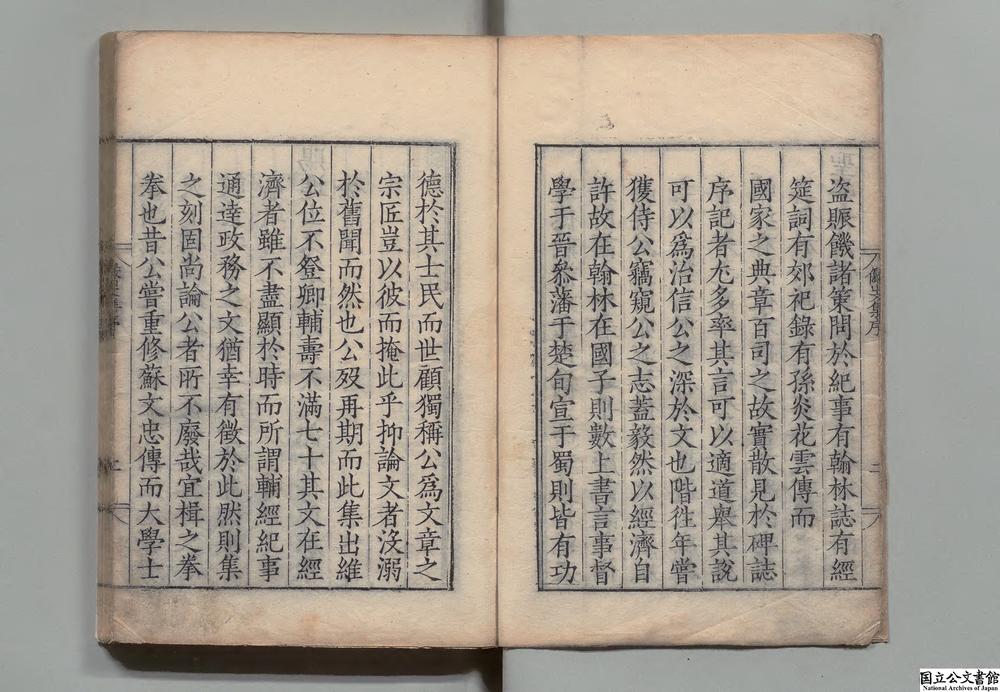 盗賑饑諸策問於紀事有翰林誌有經
筵詞有郊祀錄有孫炎花雲傳而
國家之典章百司之故實散見於碑誌
序記者尤多率其言可以適道舉其說
可以為治信公之深於文也階徃年嘗
獲侍公竊窺公之志蓋毅然以經濟自
許故在翰林在國子則數上書言事督
學于晉叅藩于楚旬宣于蜀則皆有功
德於其士民而世顧獨稱公為文章之
宗匠豈以彼而掩此乎抑論文者沒溺
於舊聞而然也公歿再期而此集出維
公位不登卿輔壽不滿七十其文在經
濟者雖不盡顯於時而所謂輔經紀事
通達政務之文猶幸有徵於此然則集
之刻固尚論公者所不廢哉宜楫之拳
拳也昔公嘗重修蘇文忠傳而大學士
儼山集序
二
国立公文書館
National Archives of Japan